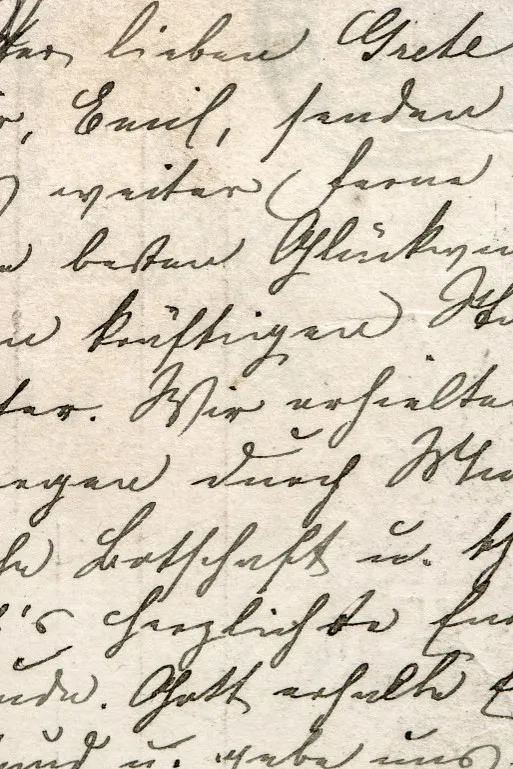 lieben Grete
, Emil, senden
weiter ferne
besten Glückwu
kräftigen
ter. Wir erhielte
orgen durch
he Botschaft u.
's herzlichste
ude. Gott erhalte
und u. gebe uns